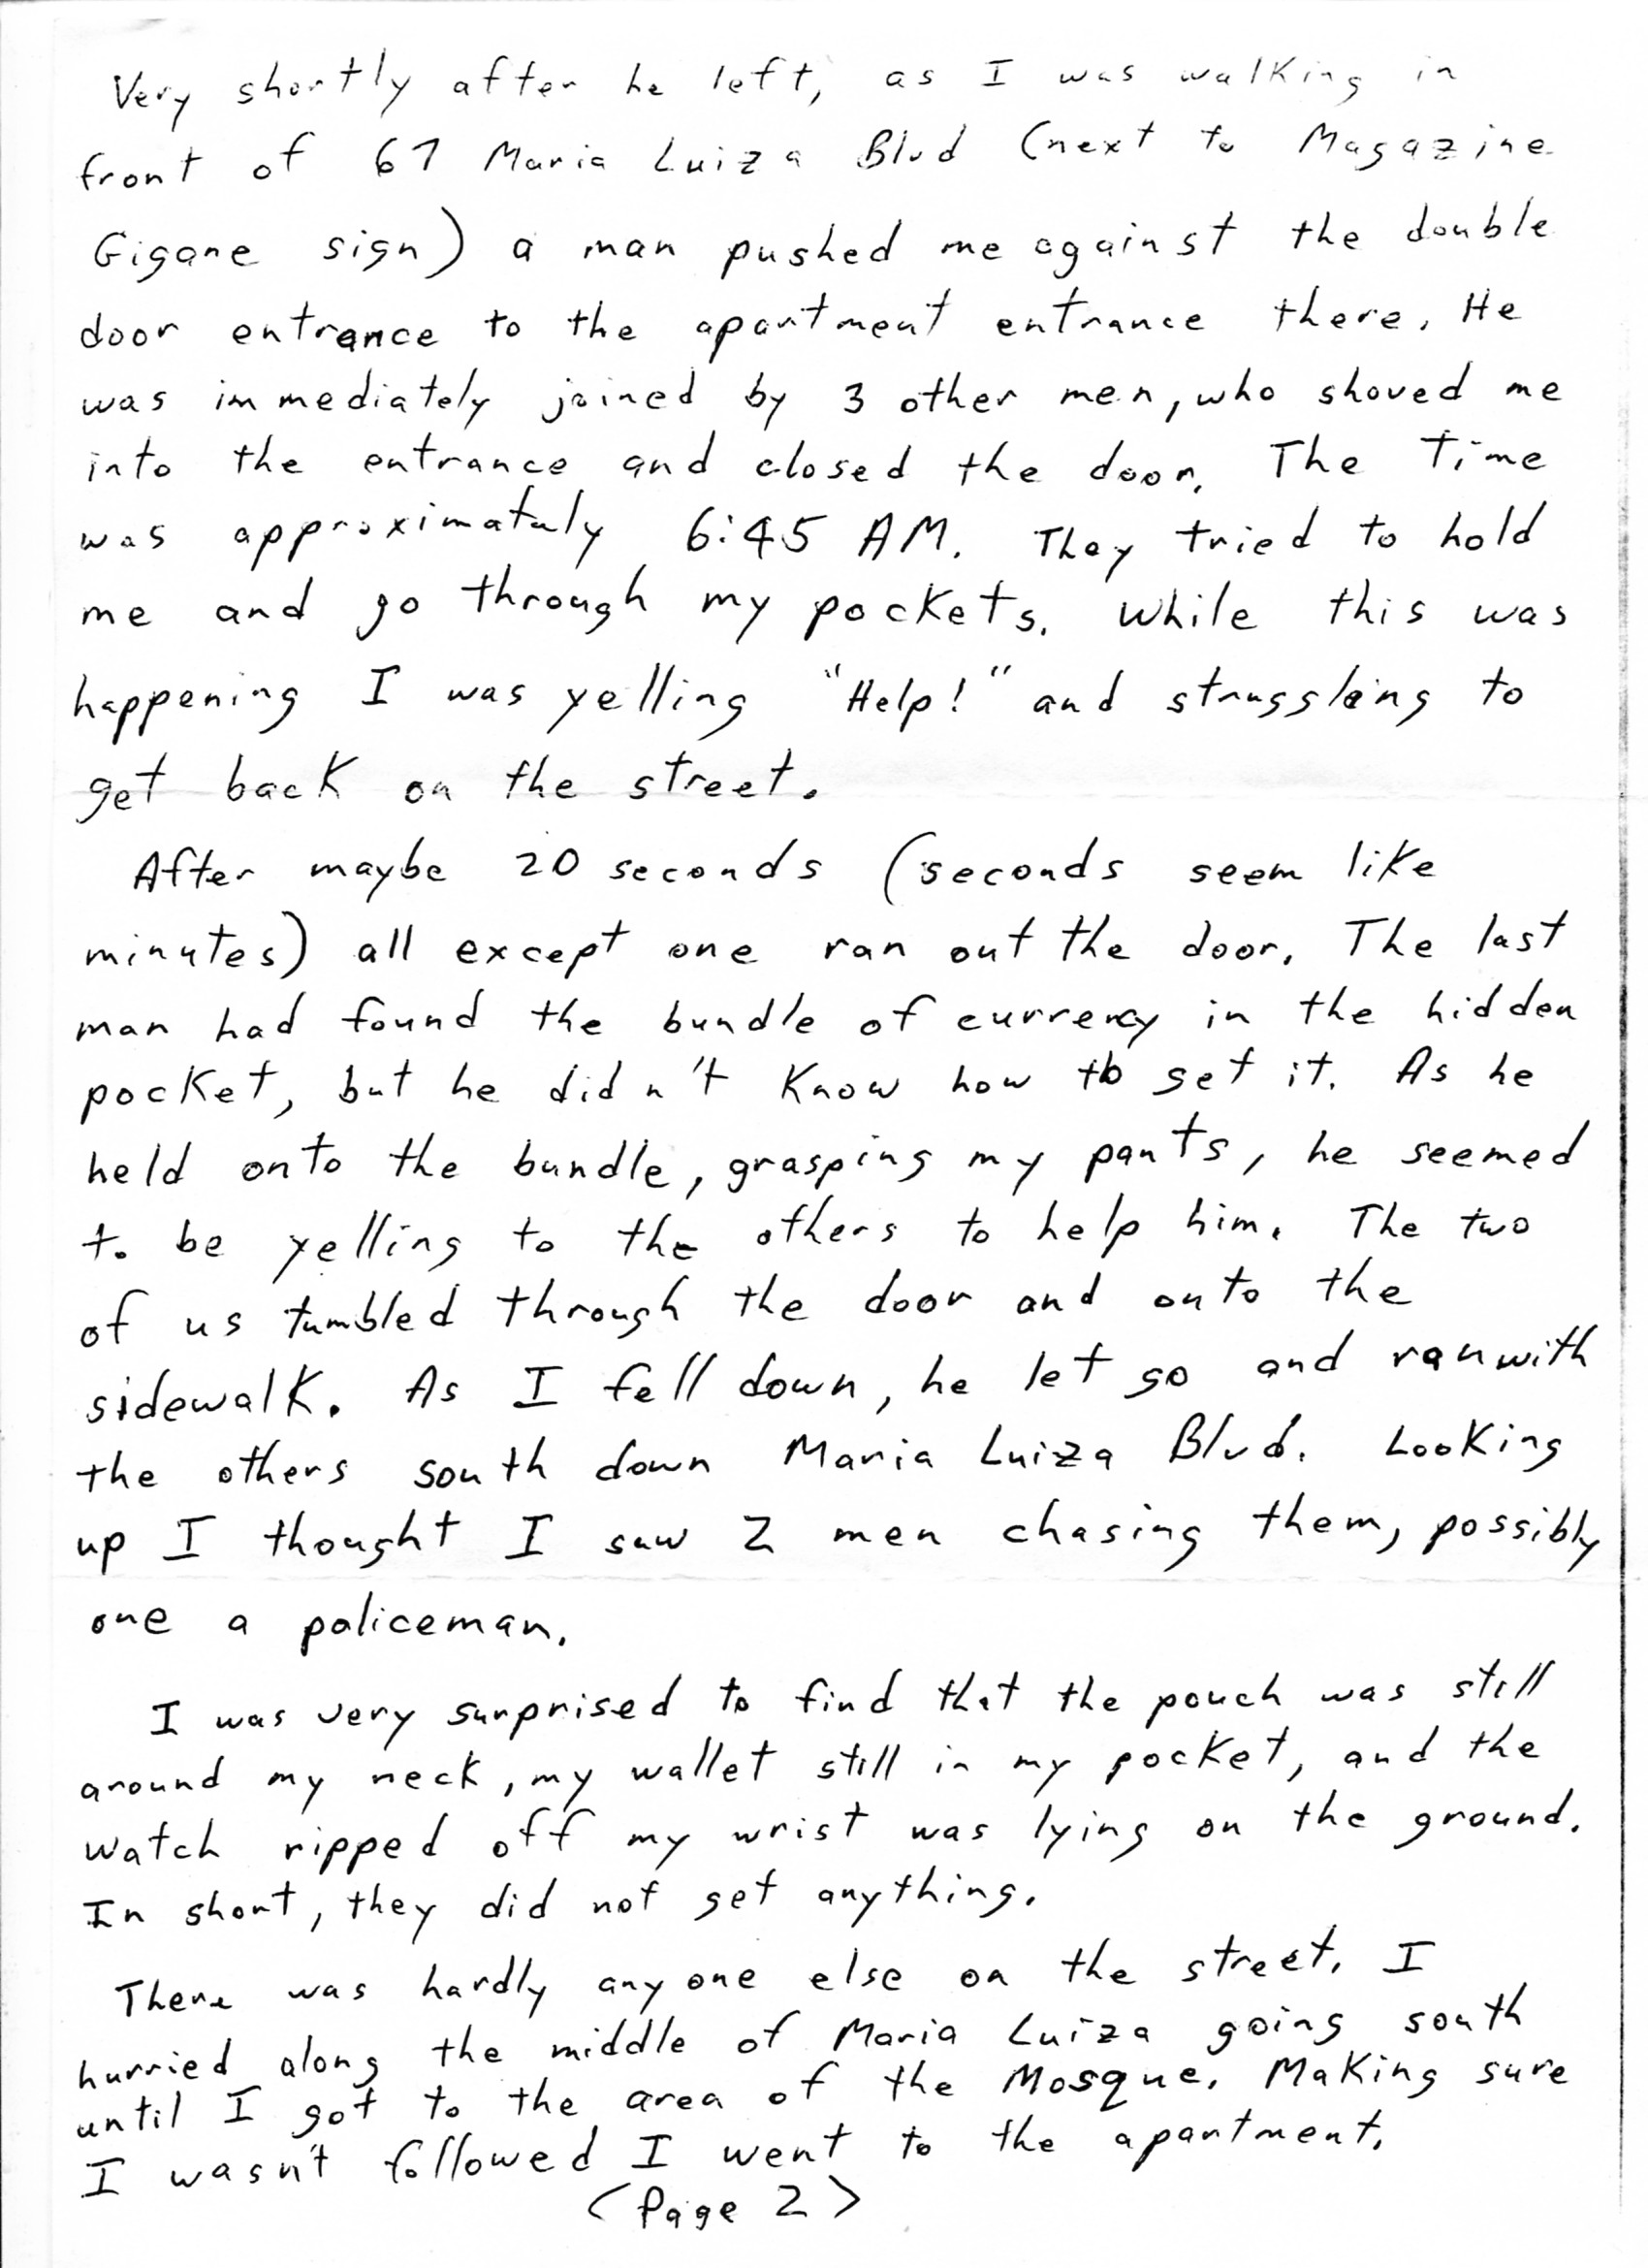 Very shortly after he left, as I was walking in
front of 67 Maria Luiza Blvd (next to Magazine
Gigane sign) a man pushed me against the double
door entrance to the apartment entrance there. He
was immediately joined by 3 other men, who shoved me
into the entrance and closed the door. The Time
was approximately 6:45 AM. They tried to hold
me and go through my pockets. While this was
happening I was yelling "Help!" and struggling to
get back on the street.
After maybe 20 seconds (seconds seem like
minutes) all except one ran out the door. The last
man had found the bundle of currency in the hidden
pocket, but he didn't know how to get it. As he
held onto the bundle, grasping my pants, he seemed
to be yelling to the others to help him. The two
of us tumbled through the door and onto the
sidewalk. As I fell down, he let go and ran with
the others south down Maria Luiza Blvd. Looking
up I thought I saw 2 men chasing them, possibly
one a policeman.
I was very surprised to find that the pouch was still
around my neck, my wallet still in my pocket, and the
watch ripped off my wrist was lying on the ground.
In short, they did not get anything.
There was hardly anyone else on the street. I
hurried along the middle of Maria Luiza going south
until I got to the area of the Mosque. Making sure
I wasn't followed I went to the apartment.
<Page 2>